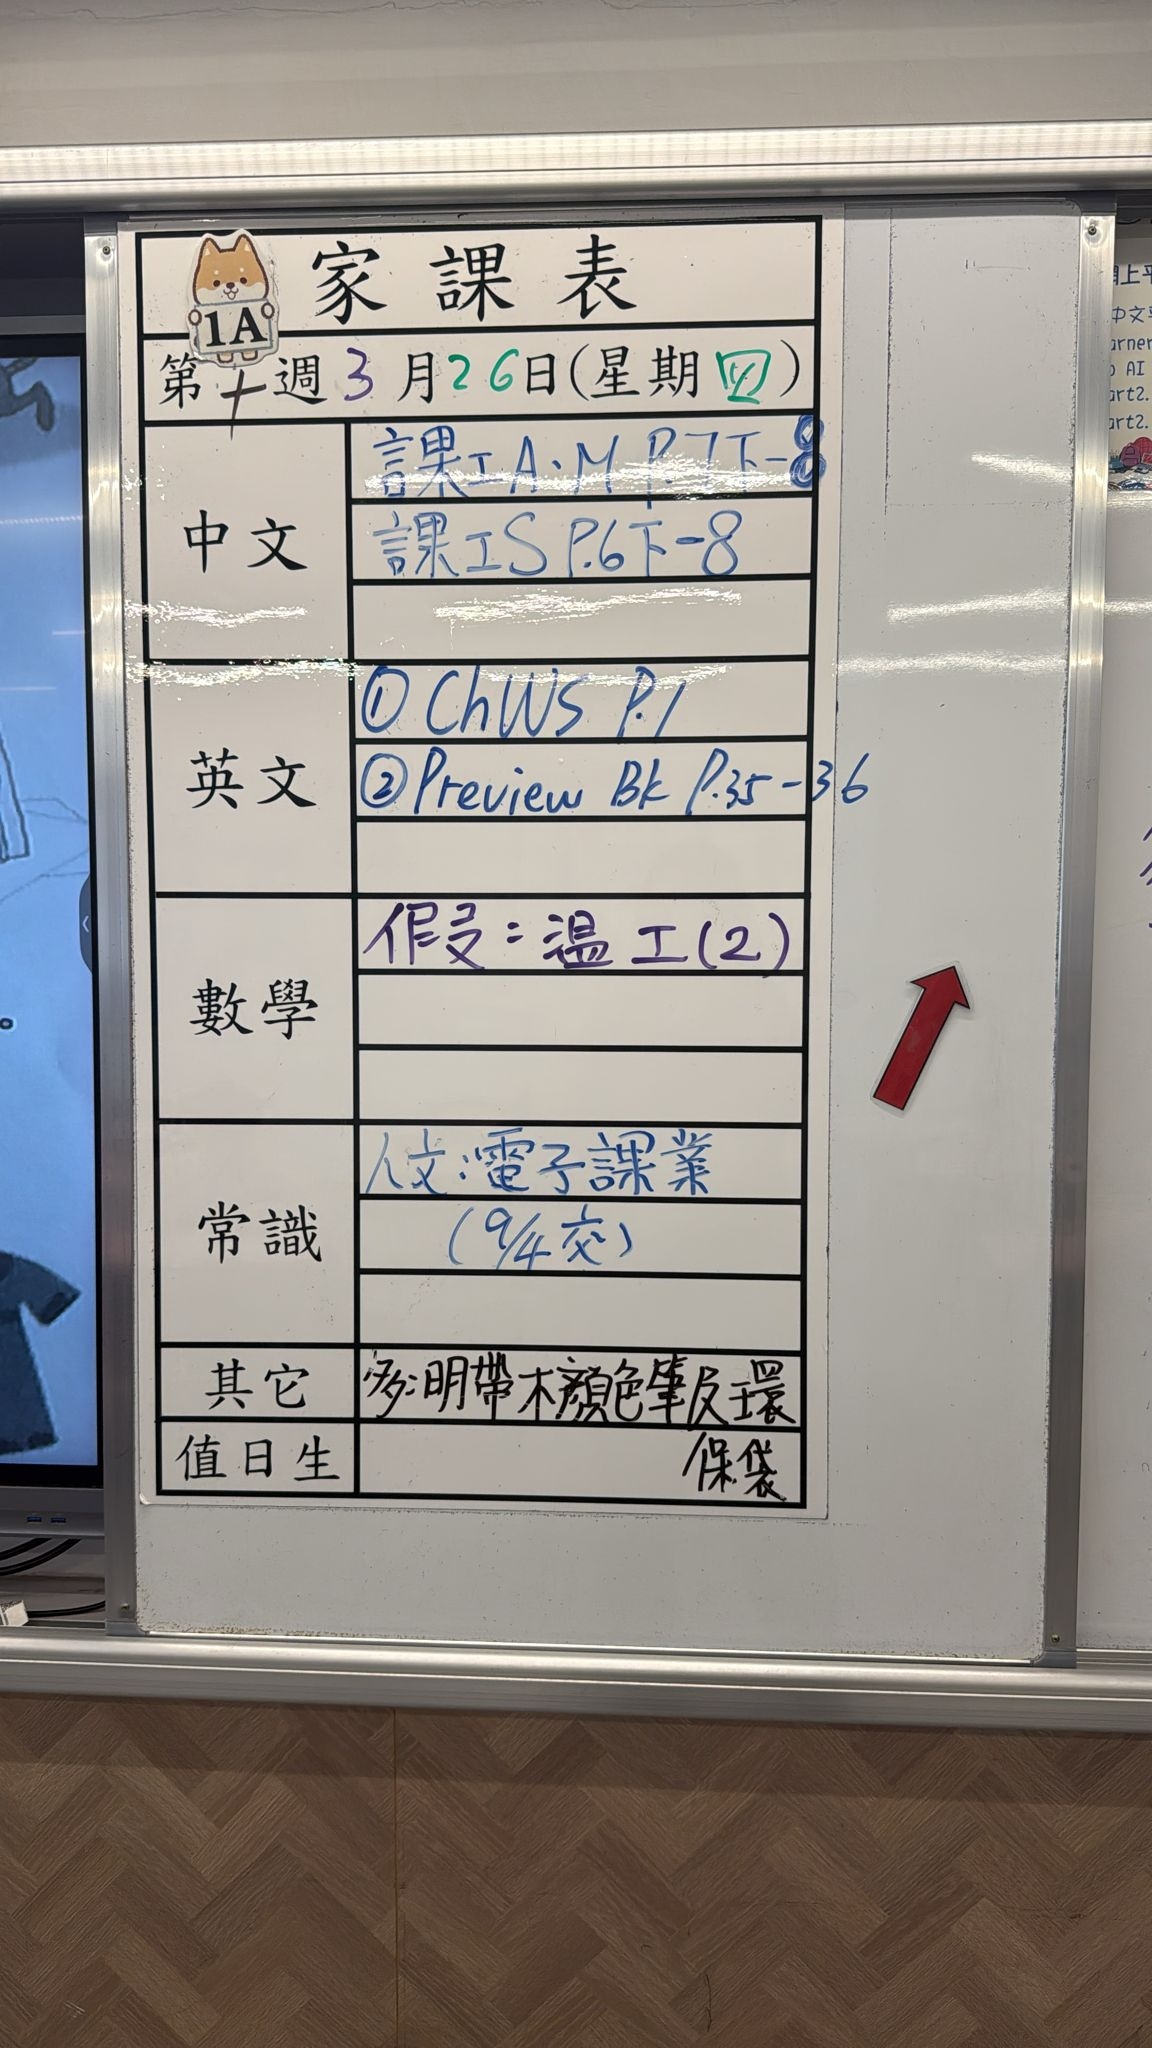 家課表
1A
第十週3月26日(星期四)
中文
課工A.M P.7下-8
課工S P.6下-8
英文
① ChWS P.1
② Preview Bk P.35-36
數學
假:溫工(2)
常識
人文:電子課業
(9/4交)
其它
多:明帶木顏色筆及環
保袋
值日生
中文
AI